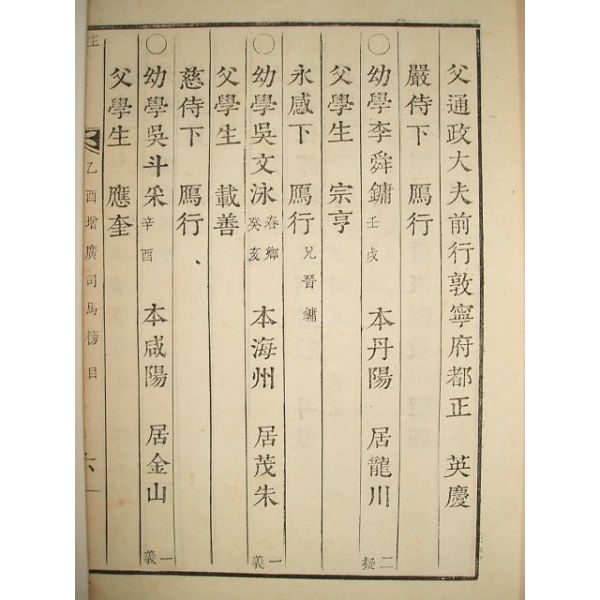 父通政大夫前行敦寧府都正 英慶
嚴侍下 鴈行
○幼學李舜鏞 壬戌 本丹陽 居龍川 二疑
父學生 宗亨
永感下 鴈行 兄晉鏞
○幼學吳文泳 春卿 癸亥 本海州 居茂朱 一義
父學生 載善
慈侍下 鴈行
○幼學吳斗采 辛酉 本咸陽 居金山 一義
父學生 應奎
乙酉增廣司馬榜目
六